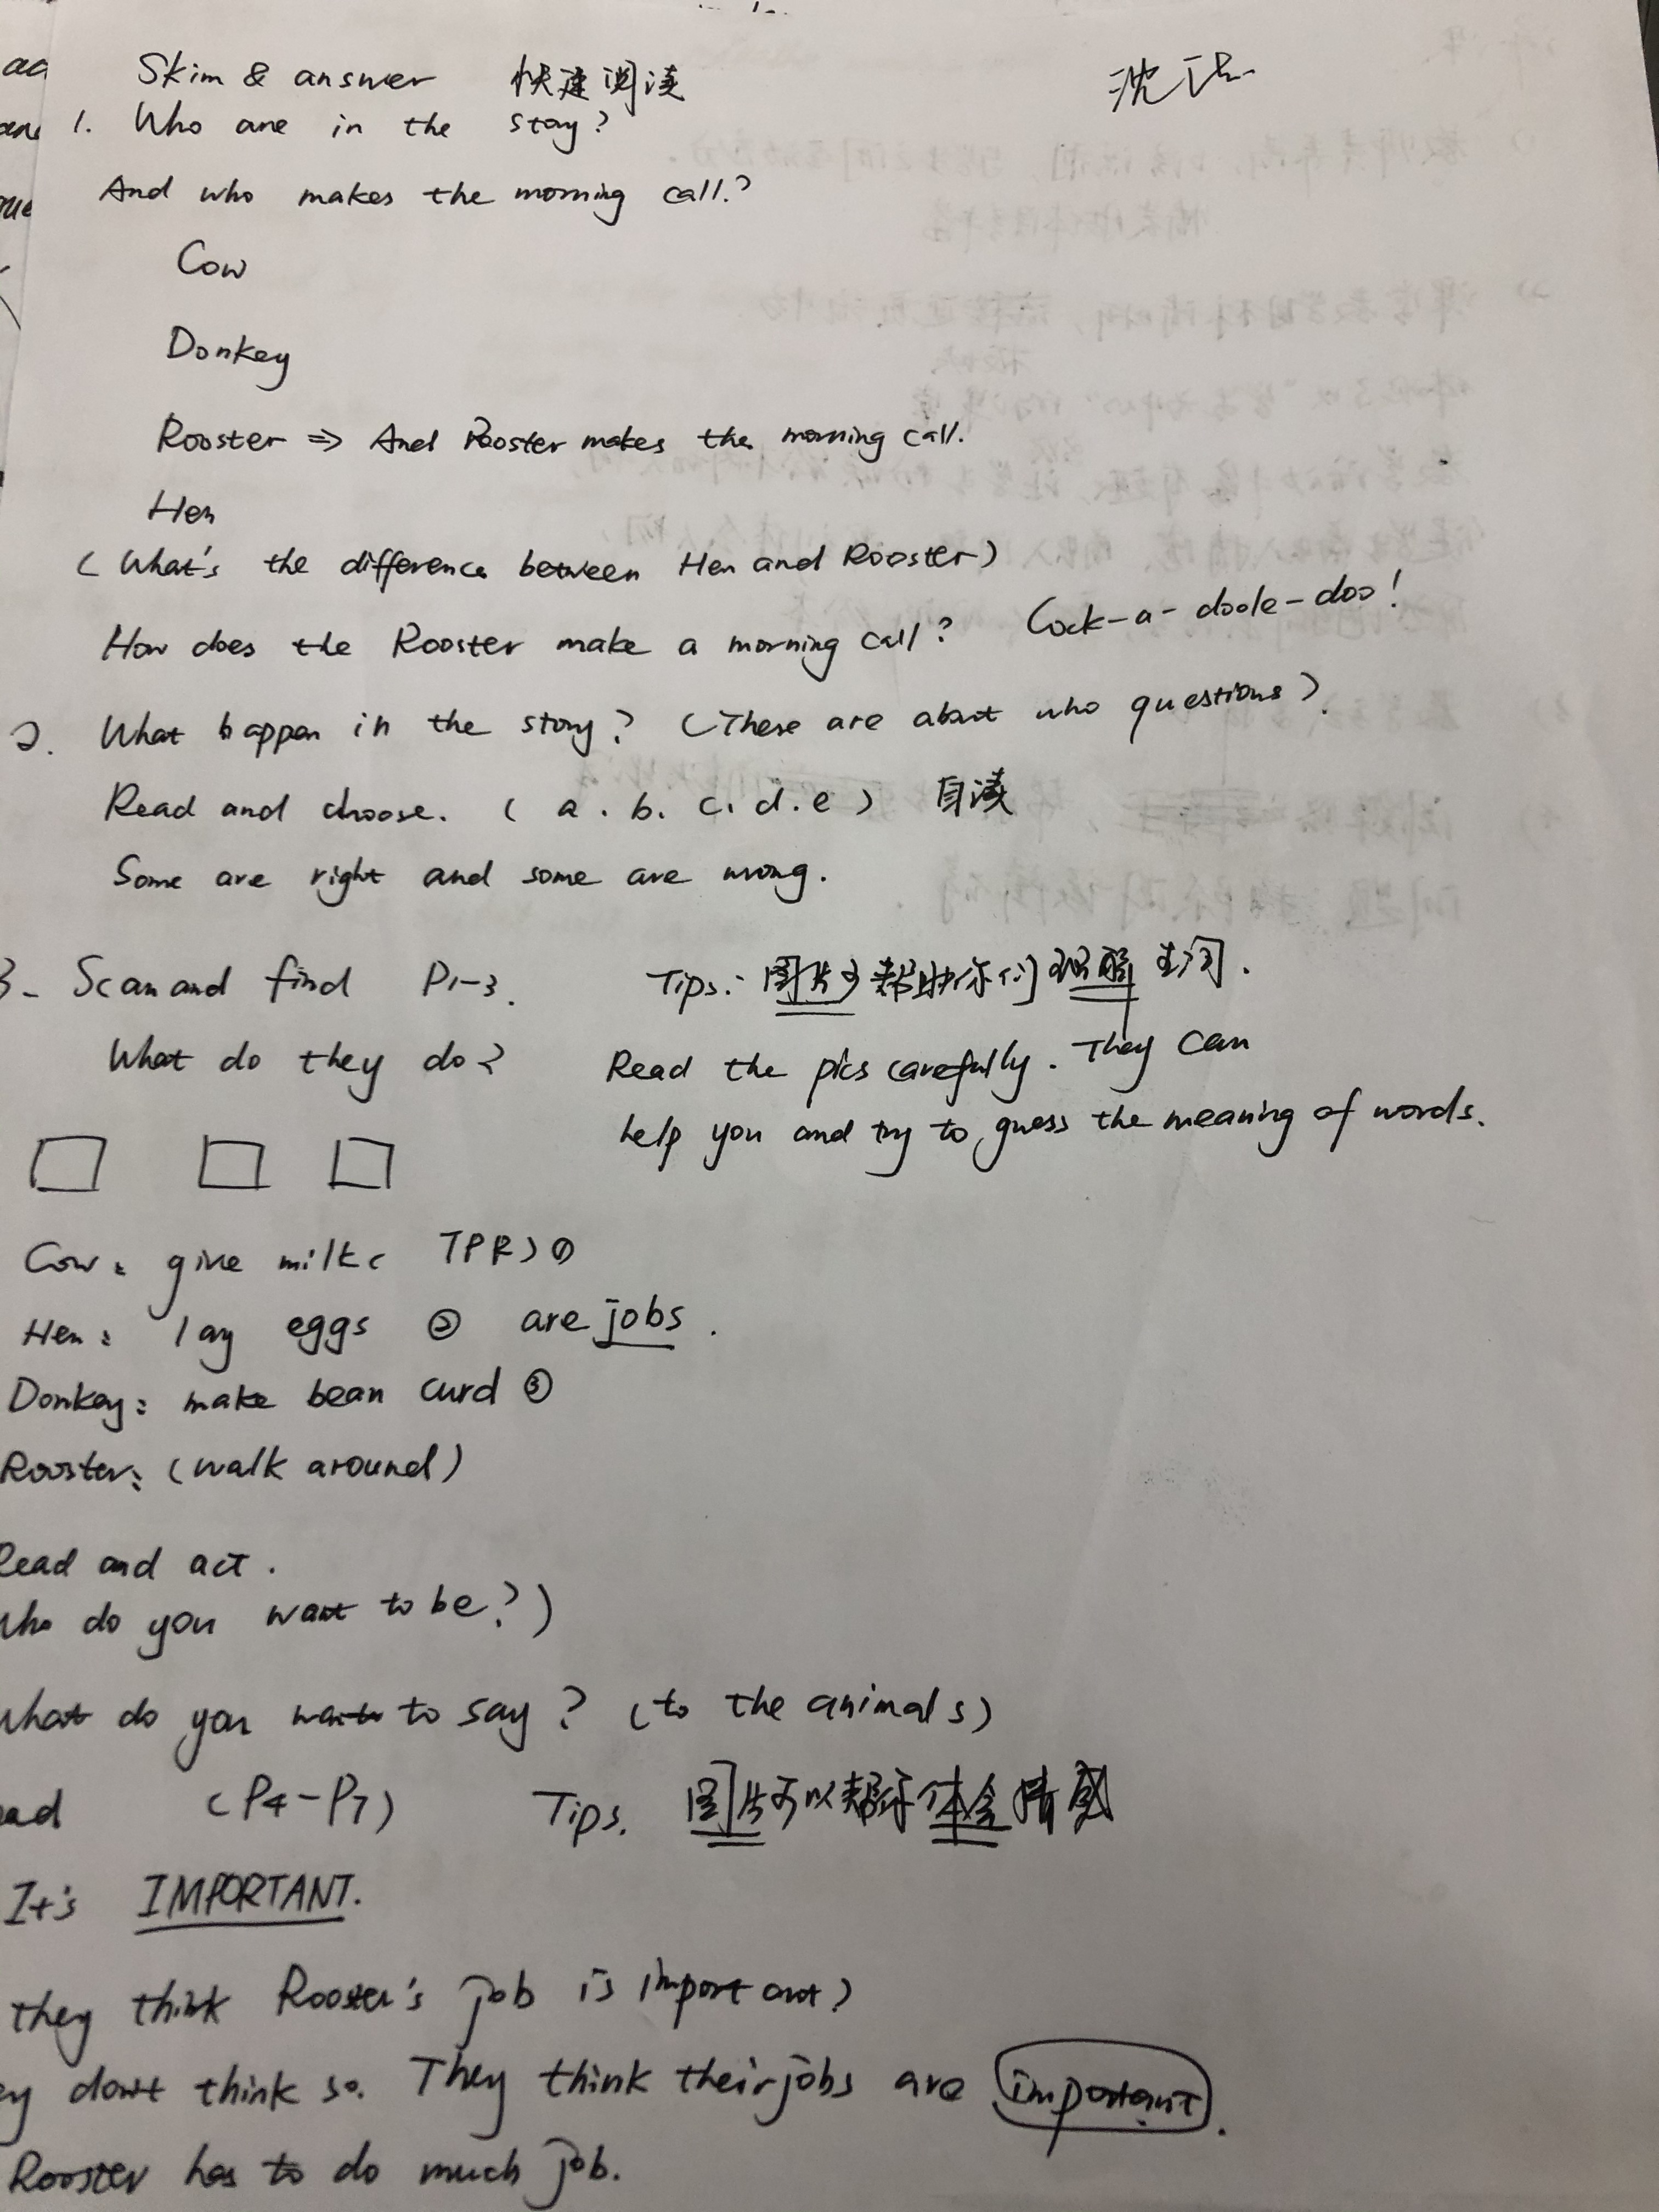 Skim & answer 快速阅读
1. Who are in the stoy?
And who makes the morning call?
Cow
Donkey
Rooster ⇒ And Rooster makes the morning call.
Hen
( What's the difference between Hen and Rooster)
How does the Rooster make a morning call? Cock-a-doole-doo!
2. What happen in the story? (These are about who questions).
Read and choose. ( a. b. c. d. e ) 自读
Some are right and some are wrong.
3. Scan and find P1-3. Tips: 图片可帮助你们理解生词.
What do they do? Read the pics carefully. They can
help you and try to guess the meaning of words.
Cow: give milk ( TPR) ①
Hen: lay eggs ② are jobs.
Donkey: make bean curd ③
Rooster: (walk around)
Read and act.
Who do you want to be?)
What do you want to say? (to the animals)
ead (P4-P7) Tips. 图片可以帮你体会情感
It's IMPORTANT.
they think Rooster's job is important?
ey don't think so. They think their jobs are important.
Rooster has to do much job.